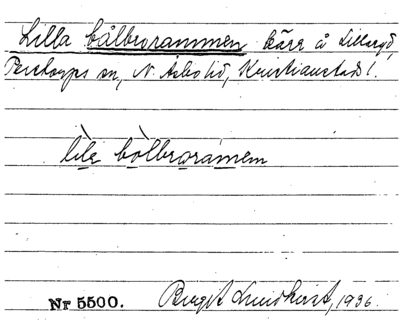 Lilla bålbrorammen kärr å Lilleryd,
Perstorps sn, N. Åsbo hd, Kristianstads l.
lìla bòlbrorámem
Nr 5500. Birgit Lundkvist, 1936.